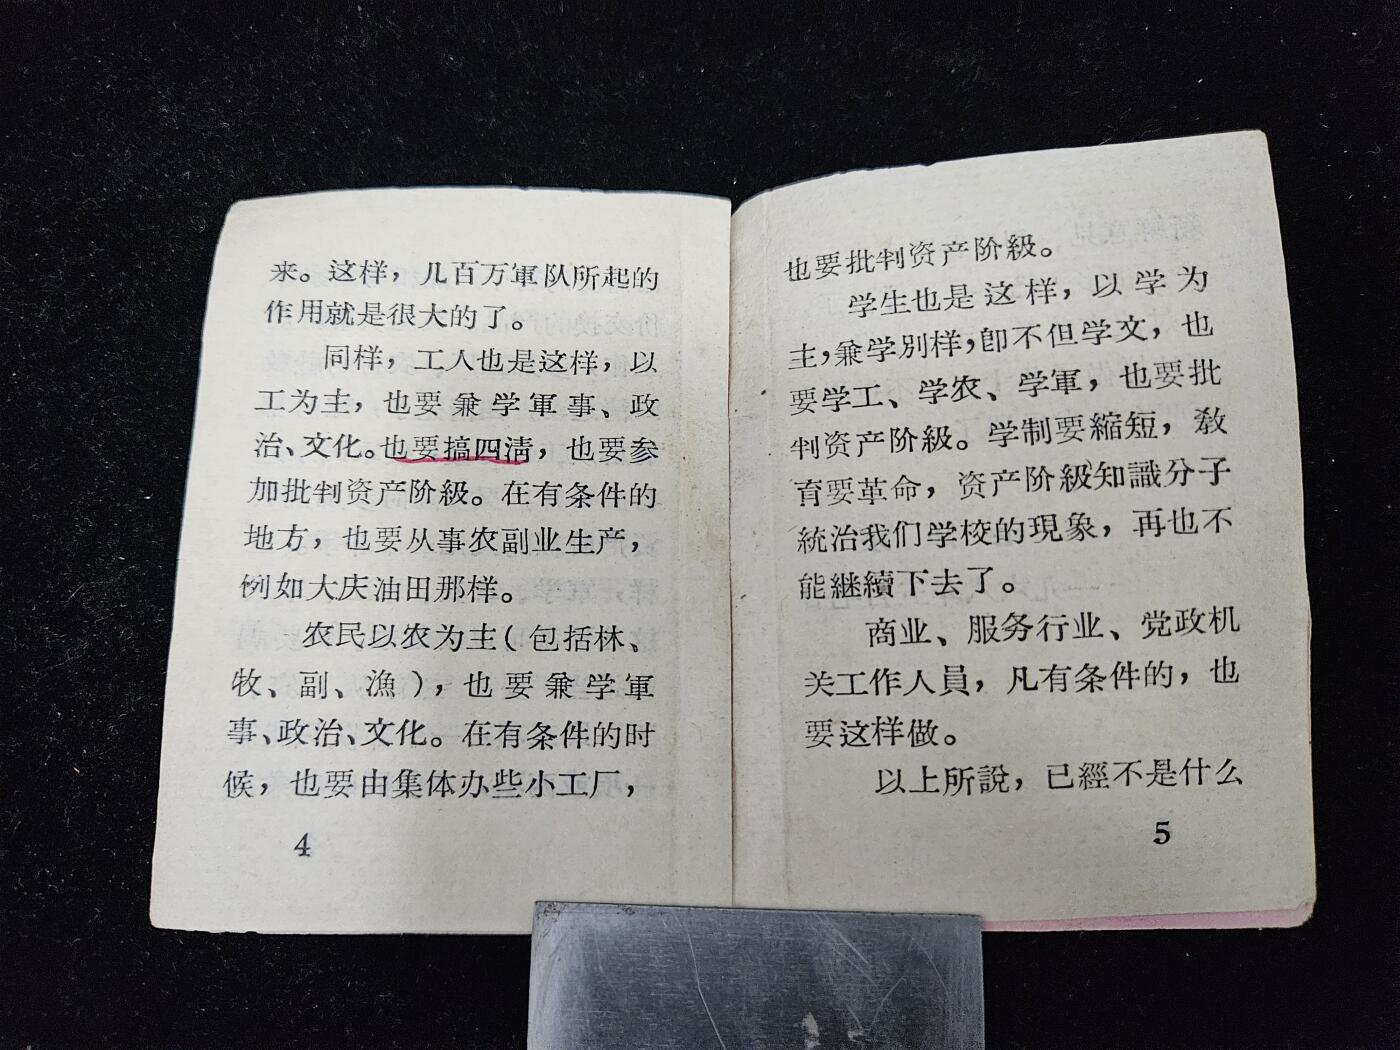 来。这样，几百万軍队所起的
作用就是很大的了。
同样，工人也是这样，以
工为主，也要兼学軍事、政
治、文化。也要搞四清，也要参
加批判资产阶級。在有条件的
地方，也要从事农副业生产，
例如大庆油田那样。
农民以农为主（包括林、
牧、副、漁），也要兼学軍
事、政治、文化。在有条件的时
候，也要由集体办些小工厂，
4
也要批判资产阶級。
学生也是这样，以学为
主，兼学別样，卽不但学文，也
要学工、学农、学軍，也要批
判资产阶級。学制要縮短，敎
育要革命，资产阶級知識分子
統治我们学校的現象，再也不
能継續下去了。
商业、服务行业、党政机
关工作人員，凡有条件的，也
要这样做。
以上所說，已經不是什么
5